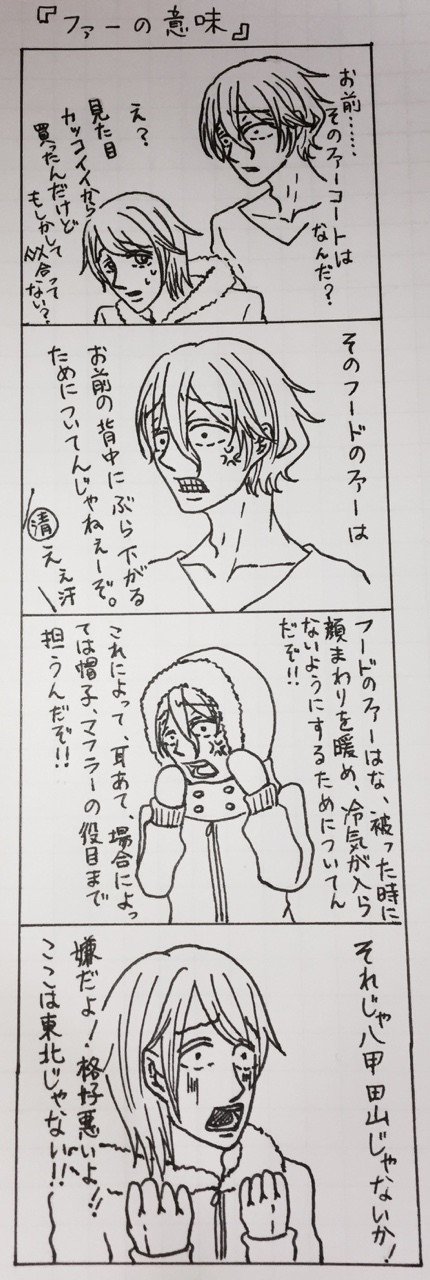 『ファーの意味』
お前……
そのファーコートは
なんだ？
え？
見た目
カッコイイから
買ったんだけど
もしかして
似合って
ない？
そのフードのファーは
お前の背中にぶら下がる
ためについてんじゃねぇーぞ。
清 ええ汗
フードのファーはな、被った時に
顔まわりを暖め、冷気が入ら
ないようにするためについてん
だぞ!!
これによって、耳あて、場合によっ
ては帽子、マフラーの役目まで
担うんだぞ!!
それじゃ八甲田山じゃないか！
嫌だよ！格好悪いよ!!
ここは東北じゃない!!